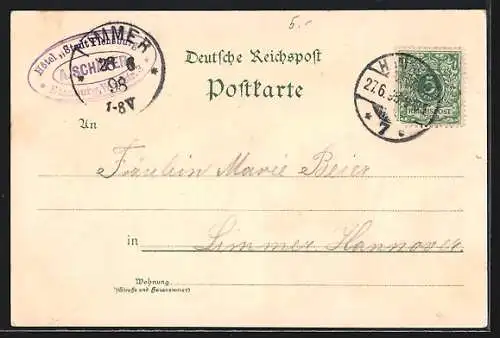 5.-
Hôtel „Stadt Flensburg"
A. SCH
LIMMER
28 6
98
1-8V
Deutsche Reichspost
Postkarte
27.6.98
* 7 c
REICHSPOST
An
Fräulein Marie Beier
in Limmer Hannover.
Wohnung
(Straße und Hausnummer)